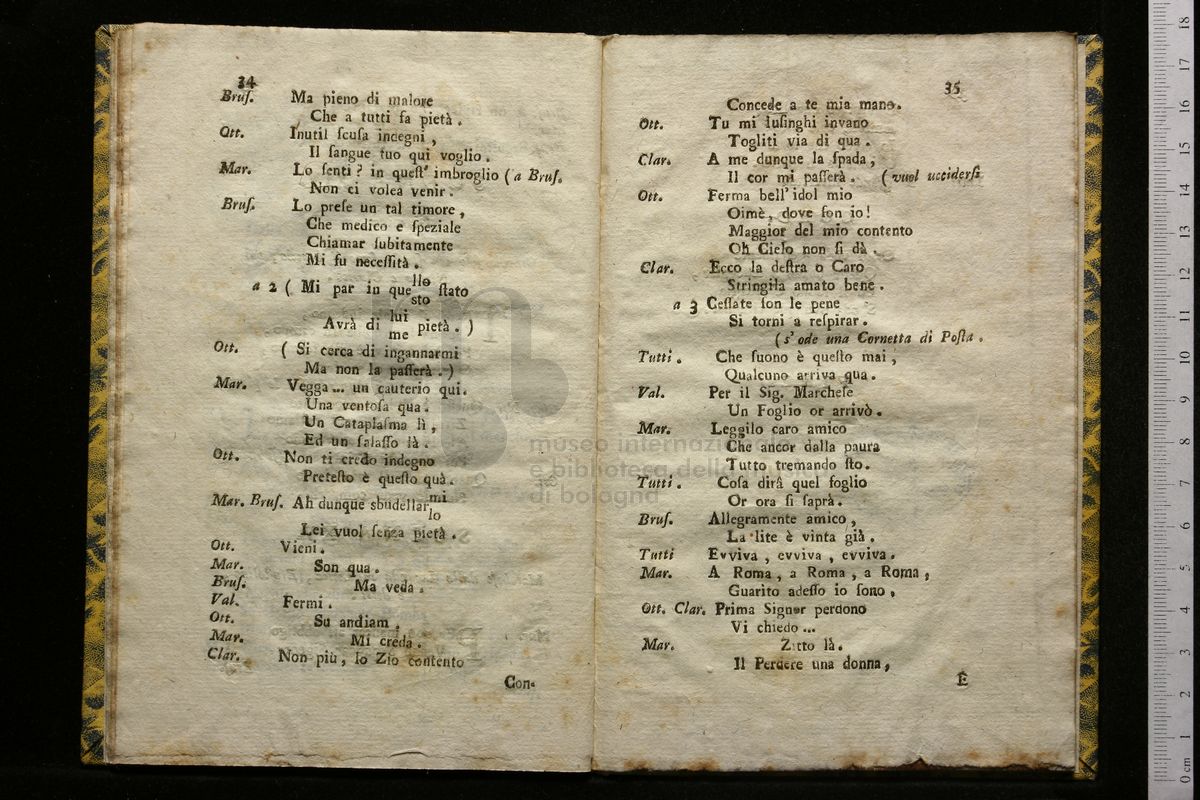 34
Bruſ. Ma pieno di malore
Che a tutti fa pietà.
Ott. Inutil ſcuſa indegni,
Il ſangue tuo qui voglio.
Mar. Lo ſenti? in queſt' imbroglio (a Bruſ.
Non ci volea venir.
Bruſ. Lo preſe un tal timore,
Che medico e ſpeziale
Chiamar ſubitamente
Mi fu neceſſità.
a 2 ( Mi par in quello ſtato
sto
Avrà di lui pietà. )
me
Ott. ( Si cerca di ingannarmi
Ma non la paſſerà. )
Mar. Vegga ... un cauterio qui.
Una ventoſa qua.
Un Cataplaſma lì,
Ed un ſalaſſo là.
Ott. Non ti credo indegno
Preteſto è queſto quà.
Mar. Bruſ. Ah dunque sbudellarmi
lo
Lei vuol ſenza pietà.
Ott. Vieni.
Mar. Son qua.
Bruſ. Ma veda.
Val. Fermi.
Ott. Su andiam.
Mar. Mi creda.
Clar. Non più, lo Zio contento
Con-
35
Concede a te mia mano.
Ott. Tu mi luſinghi invano
Togliti via di qua.
Clar. A me dunque la ſpada,
Il cor mi paſſerà. (vuol ucciderſi
Ott. Ferma bell' idol mio
Oimè, dove ſon io!
Maggior del mio contento
Oh Cielo non ſi dà.
Clar. Ecco la deſtra o Caro
Stringila amato bene.
a 3 Ceſſate ſon le pene
Si torni a reſpirar.
(s' ode una Cornetta di Poſta.
Tutti. Che ſuono è queſto mai,
Qualcuno arriva qua.
Val. Per il Sig. Marcheſe
Un Foglio or arrivò.
Mar. Leggilo caro amico
Che ancor dalla paura
Tutto tremando ſto.
Tutti. Coſa dirà quel foglio
Or ora ſi ſaprà.
Bruſ. Allegramente amico,
La lite è vinta già.
Tutti Evviva, evviva, evviva.
Mar. A Roma, a Roma, a Roma,
Guarito adeſſo io ſono,
Ott. Clar. Prima Signor perdono
Vi chiedo ...
Mar. Zitto là.
Il Perdere una donna,
E
museo internazionale
e biblioteca della musica
di bologna
0 cm 1 2 3 4 5 6 7 8 9 10 11 12 13 14 15 16 17 18